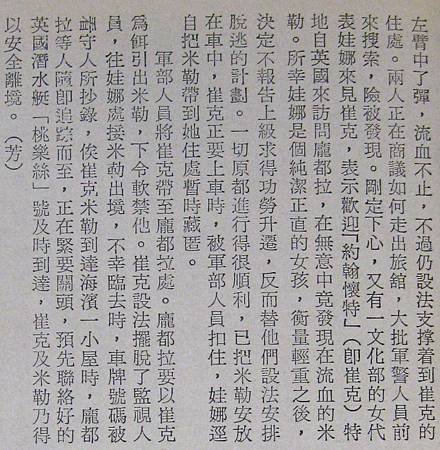 左臂中了彈，流血不止，不過仍設法支撐着到崔克的
住處。兩人正在商議如何走出旅舘，大批軍警人員前
來搜索，險被發現。剛定下心，又有一文化部的女代
表娃娜來見崔克，表示歡迎「約翰懷特」（即崔克）特
地自英國來訪問龐都拉，在無意中竟發現在流血的米
勒。所幸娃娜是個純潔正直的女孩，衡量輕重之後，
決定不報告上級求得功勞升遷，反而替他們設法安排
脫逃的計劃。一切原都進行得很順利，已把米勒安放
在車中，崔克正要上車時，被軍部人員扣住，娃娜逕
自把米勒帶到她住處暫時藏匿。
軍部人員將崔克帶至龐都拉處。龐都拉要以崔克
為餌引出米勒，下令軟禁他。崔克設法擺脫了監視人
員，往娃娜處接米勒出境，不幸臨去時，車牌號碼被
守人所抄錄，俟崔克米勒到達海濱一小屋時，龐都
拉等人隨即追踪而至，正在緊要關頭，預先聯絡好的
英國潛水艇「桃樂絲」號及時到達，崔克及米勒乃得
以安全離境。（芳）